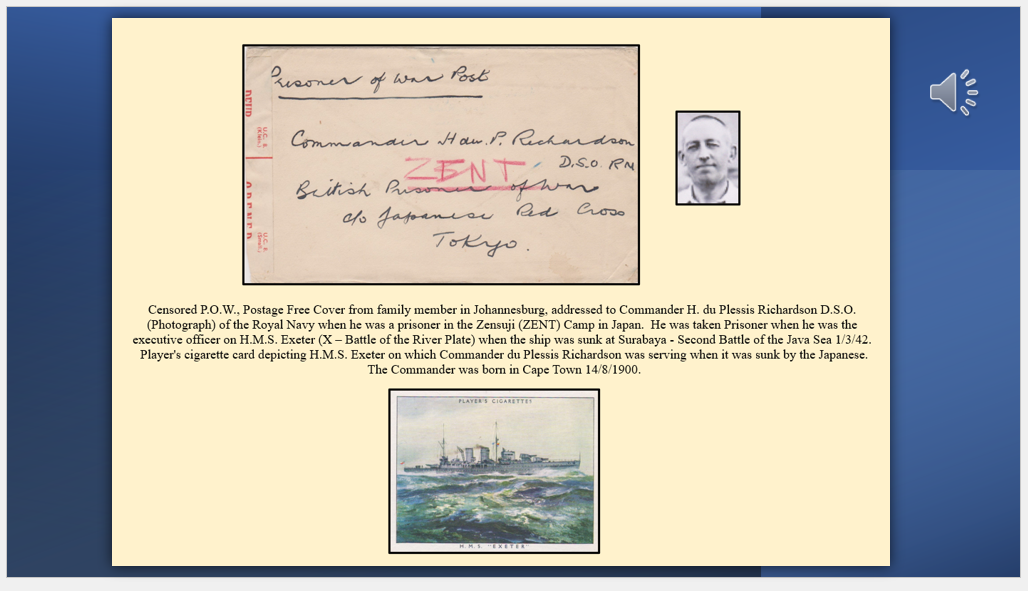 Prisoner of War Post
Commander H du. P. Richardson
D.S.O RN
ZENT
British Prisoner of War
c/o Japanese Red Cross
Tokyo.
OPENER
U.C. 6
U.C. 6
Censored P.O.W., Postage Free Cover from family member in Johannesburg, addressed to Commander H. du Plessis Richardson D.S.O.
(Photograph) of the Royal Navy when he was a prisoner in the Zensuji (ZENT) Camp in Japan.  He was taken Prisoner when he was the
executive officer on H.M.S. Exeter (X – Battle of the River Plate) when the ship was sunk at Surabaya - Second Battle of the Java Sea 1/3/42.
Player's cigarette card depicting H.M.S. Exeter on which Commander du Plessis Richardson was serving when it was sunk by the Japanese.
The Commander was born in Cape Town 14/8/1900.
PLAYER'S CIGARETTES
H.M.S. "EXETER"